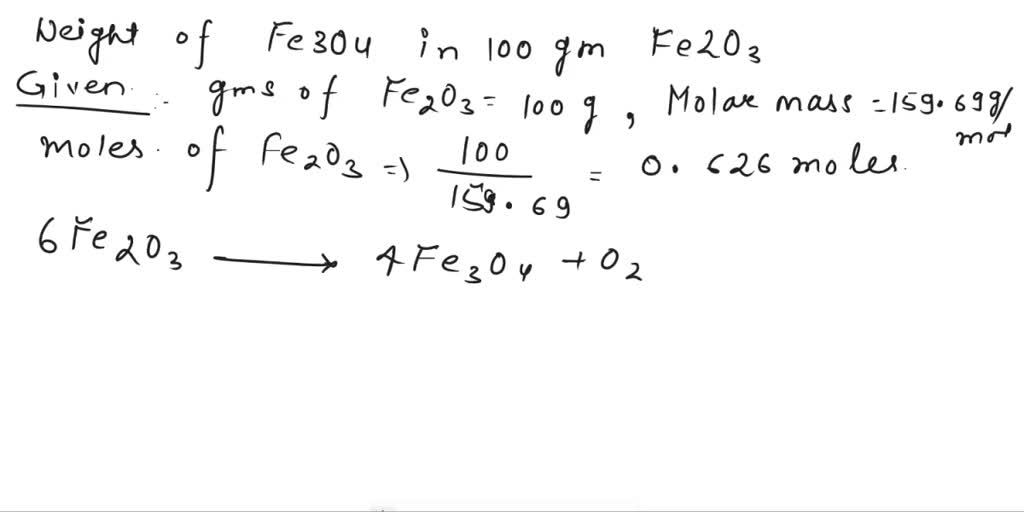 Weight of Fe3O4 in 100 gm Fe2O3
Given :- gms of Fe₂O₃ = 100 g, Molar mass = 159.69 g/mol
moles of Fe₂O₃ => 100/159.69 = 0.626 moles.
6Fe₂O₃ ⟶ 4Fe₃O₄ + O₂